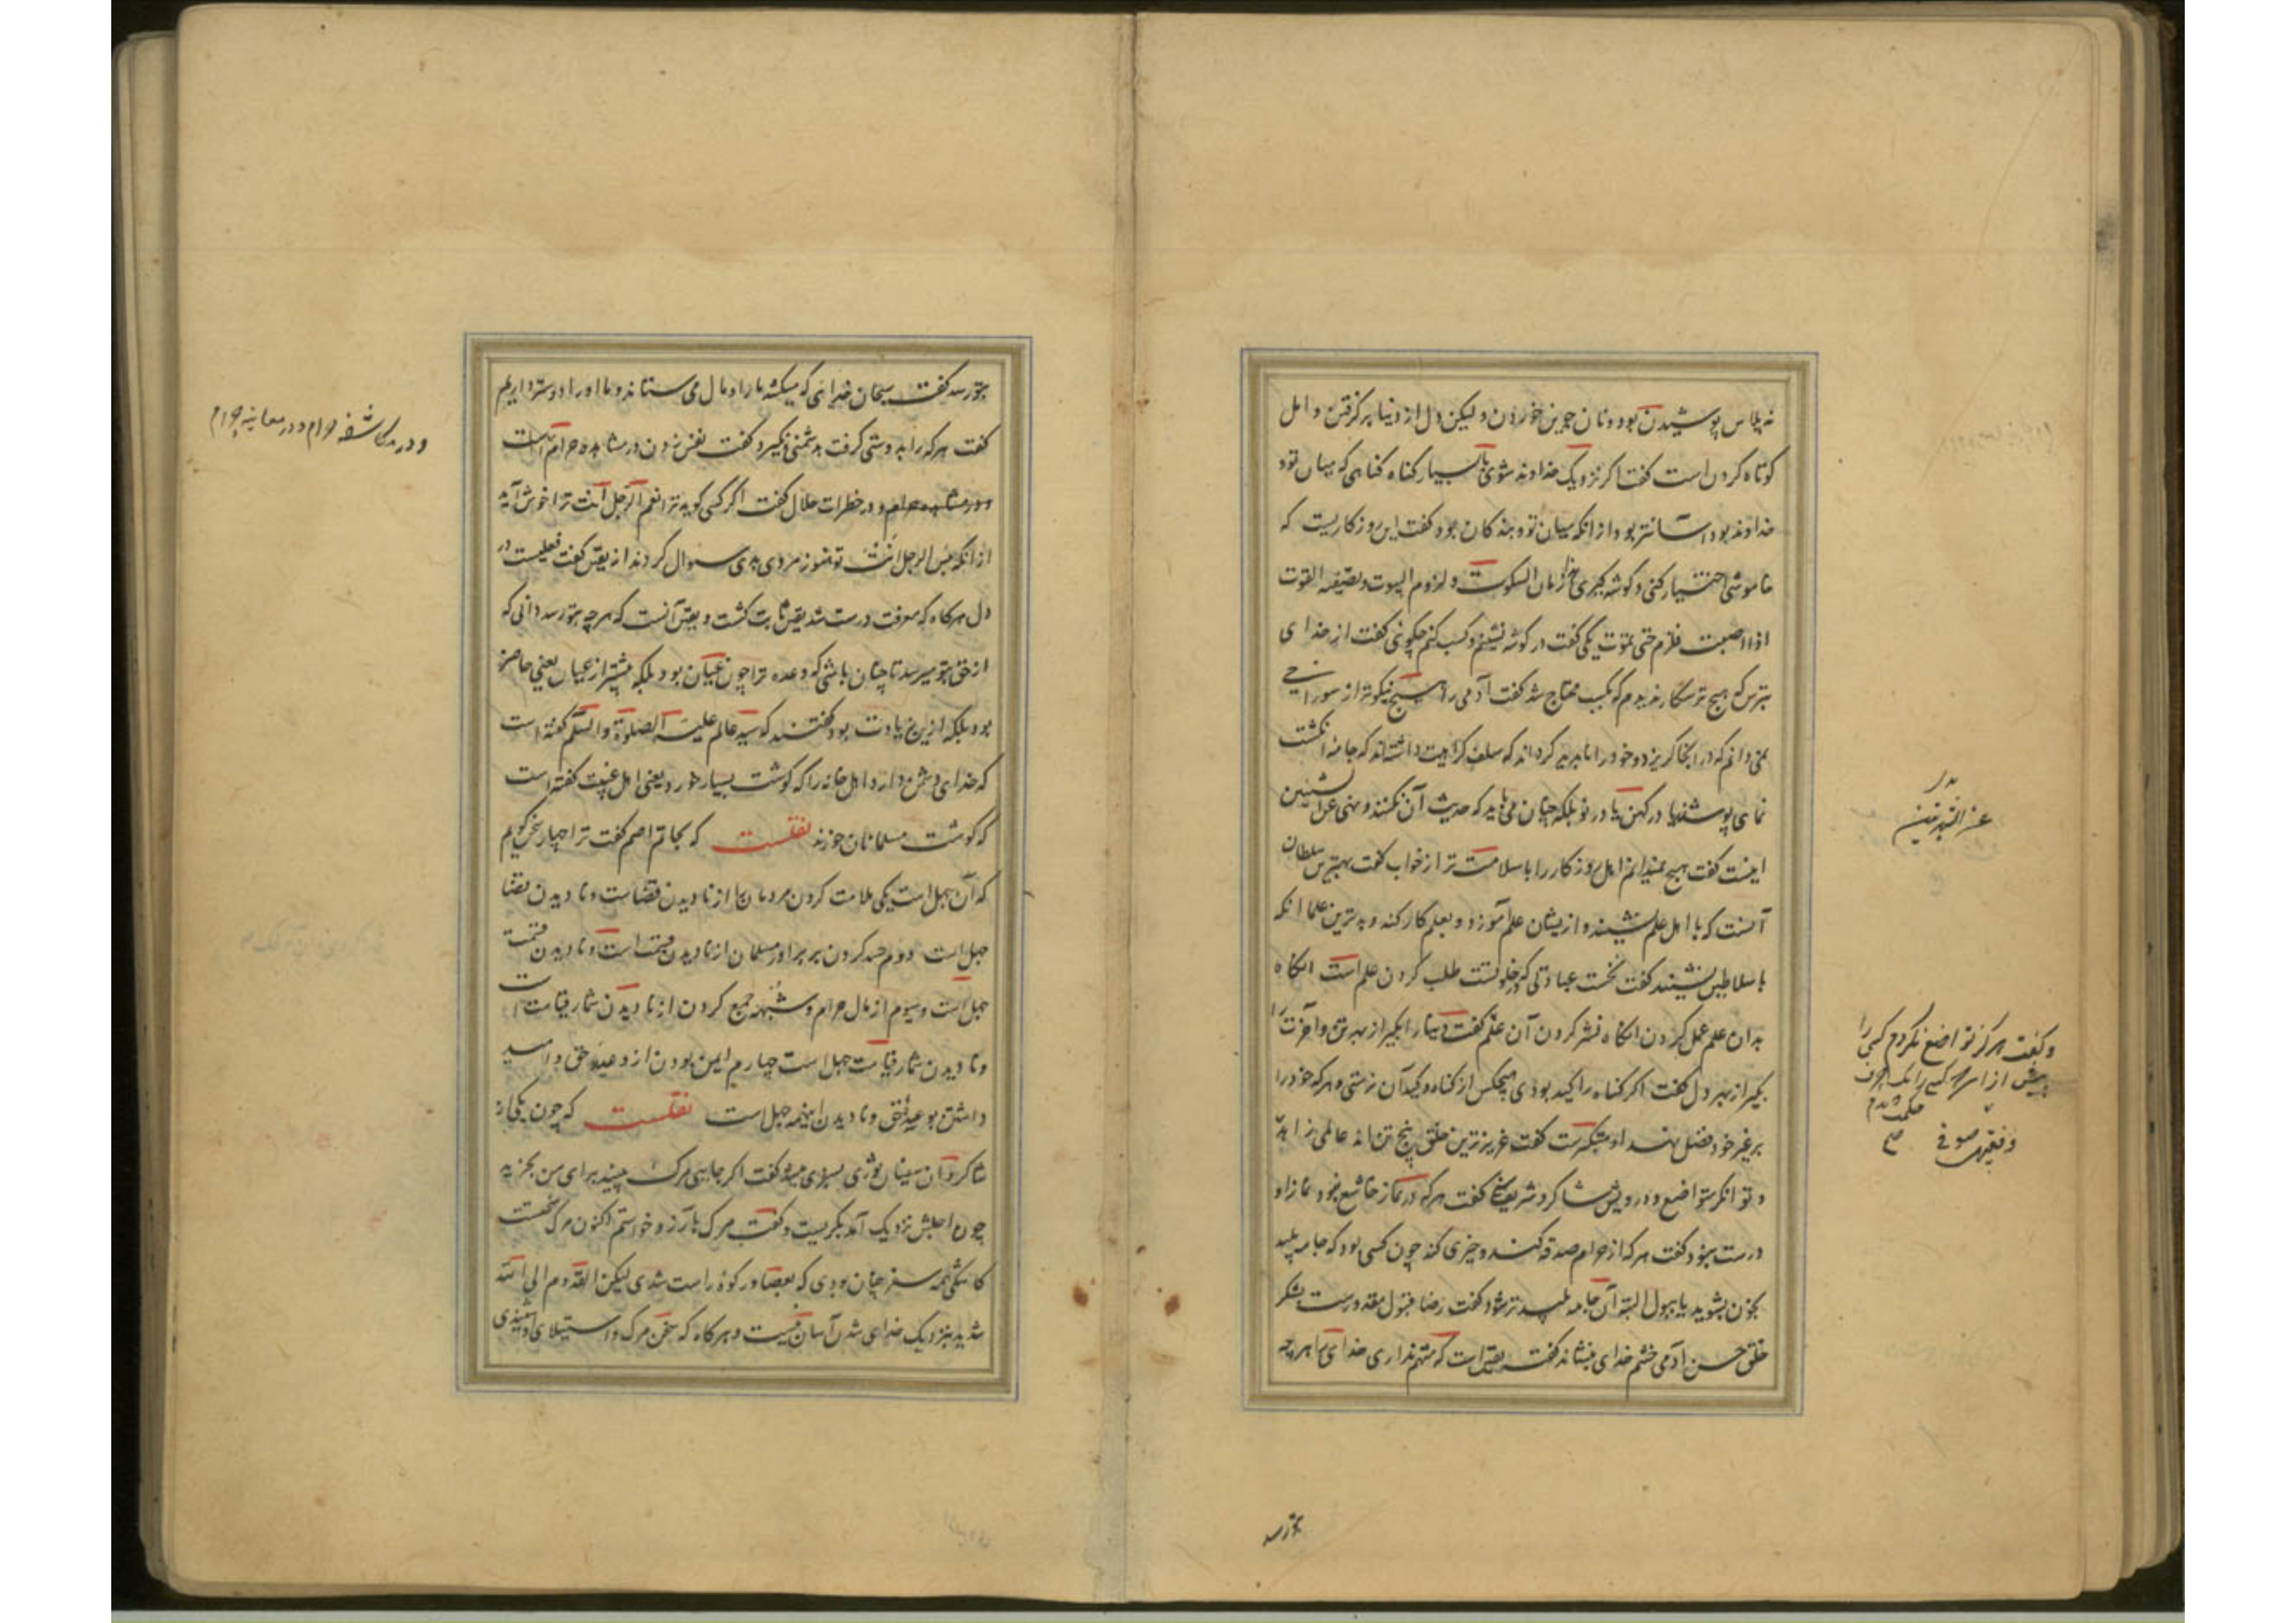 نه پلاس پوشیدن بود و نان جوین خوردن ولیکن دل از دنیا برگرفتن و امل
کوتاه کردن است گفت اگر نزدیک خداوند شوی با بسیار گناه گناهی که میان تو و
خداوند بود آسانتر بود از انکه میان تو و بندگان بود گفت این روزگاریست که
خاموشی اختیار کنی و گوشه گیری هذا زمان السکوت و لزوم البیوت
یکی گفت در گوشه نشینم و کسب کنم چگونی گفت از خدای
بترس که هیچ ترسگار ندیدم که بکسب محتاج شد گفت آدمی را هیچ نیکوتر از سوراخی
نمی دانم که در انجا گریزد و خود را ناپدید گرداند که سلف کراهیت داشته‌اند که جامه انگشت
نمای پوشند یا در کهن یا در نو بلکه چنان می باید که حدیث آن نکنند و نهی عن الشهرتین
اینست گفت هیچ نمیدانم اهل روزگار را با سلامت تر از خواب گفت بهترین سلطان
آنست که با اهل علم نشیند و ازیشان علم آموزد و بعلم کار کند و بدترین علما انکه
با سلاطین نشینند گفت نخست عبادتی که خلوتست طلب کردن علم است انگاه
بدان علم عمل کردن انگاه نشر کردن آن علم گفت دنیا را بگیر از بهر تن و آخرت را
بگیر از بهر دل گفت اگر گناه را گند بودی هیچکس از گناه و گند آن نرستی و هر که خود را
بر غیر خود فضل نهد او متکبرست گفت عزیزترین خلق پنج تن اند عالمی زاهد
و توانگر متواضع و درویش شاکر و شریف گفت هر که در نماز خاشع نبود نماز او
درست نبود گفت هر که از حرام صدقه کند و خیری کند چون کسی بود که جامه پلید
بخون بشوید یا ببول البته آن جامه پلیدتر شود گفت رضا قبول مقدورست بشکر
خلق حسن آدمی خشم خدای بنشاند گفت یقین است که متهم نداری خدای را هر چه
عن الشهرتین
و گفت هرگز تواضع نکردم کسی را
بیش از
و فقیهی صوفی
بتو رسد
بتو رسد گفت سبحان خدائی که میکشد ما را و مال می ستاند و ما او را دوستر داریم
گفت هر که را بدوستی گرفت بدشمنی نگیرد گفت نفس زدن در مشاهده حرام است
و در مشاهده حرام و در خطرات حلال گفت اگر کسی گوید ترا نعم الرجل انت ترا خوش آید
از انکه بئس الرجل انت تو هنوز مردی بدی سوال کردند از یقین گفت فعلیست در
دل هرگاه که معرفت درست شد یقین ثابت گشت و یقین آنست که هر چه بتو رسد دانی که
از حق بتو میرسد تا چنان باشی که وعده ترا چون عیان بود بلکه بیشتر از عیان یعنی حاضر
بود بلکه ازین زیادت بود گفتند که سید عالم علیه الصلوة والسلم گفته است
که خدای دشمن دارد اهل خانه را که گوشت بسیار خورد یعنی اهل غیبت گفته است
که گوشت مسلمانان خورند نقلست که بحاتم اصم گفت ترا چهار سخن گویم
که آن جهل است یکی ملامت کردن مردمان را از نادیدن قضاست و نادیدن قضا
جهل است دوم حسد کردن بر برادر مسلمان از نادیدن قسمت است و نادیدن قسمت
جهل است و سیوم از مال حرام و شبهه جمع کردن از نادیدن شمار قیامت است
و نادیدن شمار قیامت جهل است چهارم ایمن بودن از وعید حق و امید
داشتن بوعید حق و نادیدن اینهمه جهل است نقلست که چون یکی از
شاگردان سفیان ثوری بسفری میشد گفت اگر جایی مرگ بینید برای من بخرید
چون اجلش نزدیک آمد بگریست و گفت مرگ بآرزو خواستم اکنون مرگ سختست
کاشکی همه سفر چنان بودی که بعصا و رکوه راست شدی لیکن القدوم الی الله
شدید بنزدیک خدای شدن آسان نیست و هرگاه که سخن مرگ و استیلای او شنیدی
و در مکاشفه حرام و در معاینه حرام